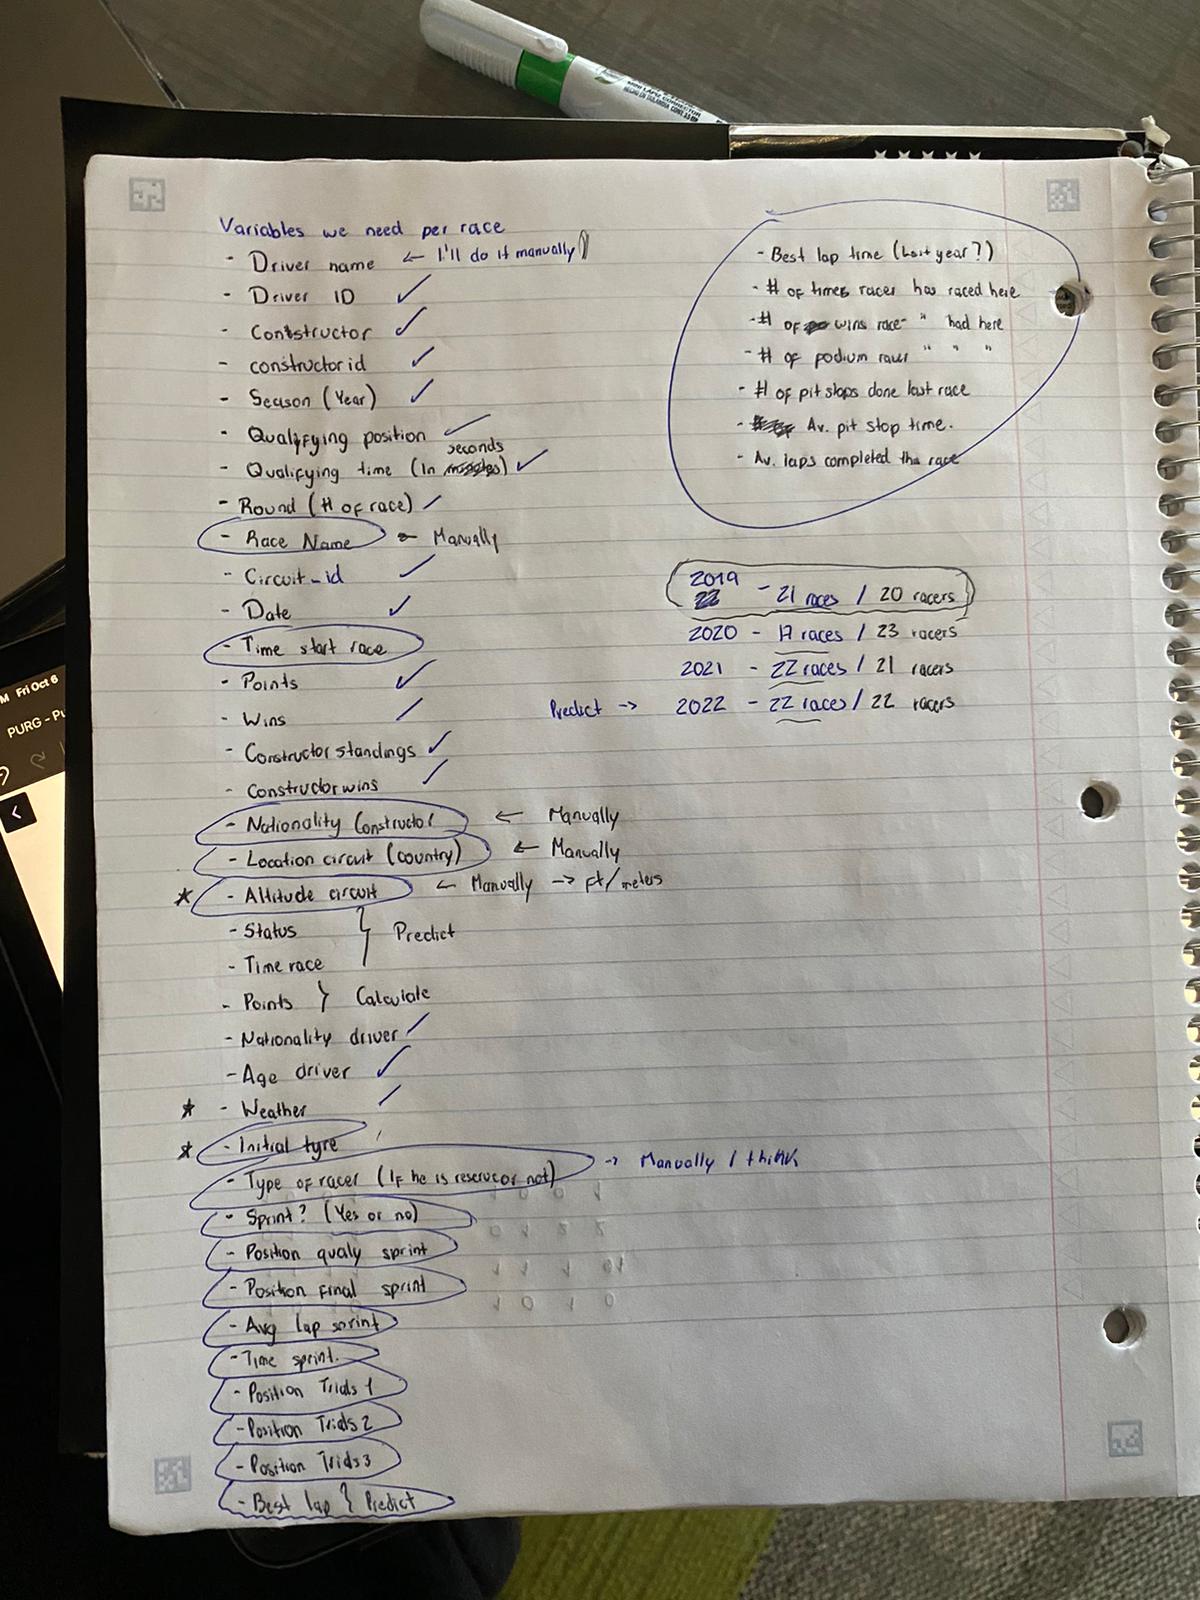 MINI LAPIZ CORRECTOR
Variables we need per race
- Driver name ← I'll do it manually
- Driver ID ✓
- Constructor ✓
- constructor id ✓
- Season (Year) ✓
- Qualifying position ✓
seconds
- Qualifying time (In) ✓
- Round (# of race) ✓
- Race Name ← Manually
- Circuit_id ✓
- Date ✓
- Time start race
- Points ✓
- Wins ✓
- Constructor standings ✓
- Constructor wins ✓
- Nationality Constructor ← Manually
- Location circuit (country) ← Manually
* - Altitude circuit ← Manually → ft/meters
- Status } Predict
- Time race
- Points } Calculate
- Nationality driver ✓
- Age driver ✓
* - Weather ✓
* - Initial tyre
- Type of racer (If he is reserve or not) → Manually I think
- Sprint? (Yes or no)
- Position qualy sprint
- Position final sprint
- Avg lap sprint
- Time sprint.
- Position Trials 1
- Position Trials 2
- Position Trials 3
- Best lap } Predict
- Best lap time (Last year?)
- # of times racer has raced here
- # of wins race- " had here
- # of podium racer " " "
- # of pit stops done last race
- Av. pit stop time.
- Av. laps completed the race
2019 - 21 races / 20 racers
2020 - 17 races / 23 racers
2021 - 22 races / 21 racers
Predict → 2022 - 22 races / 22 racers
M Fri Oct 6
PURG - Pu